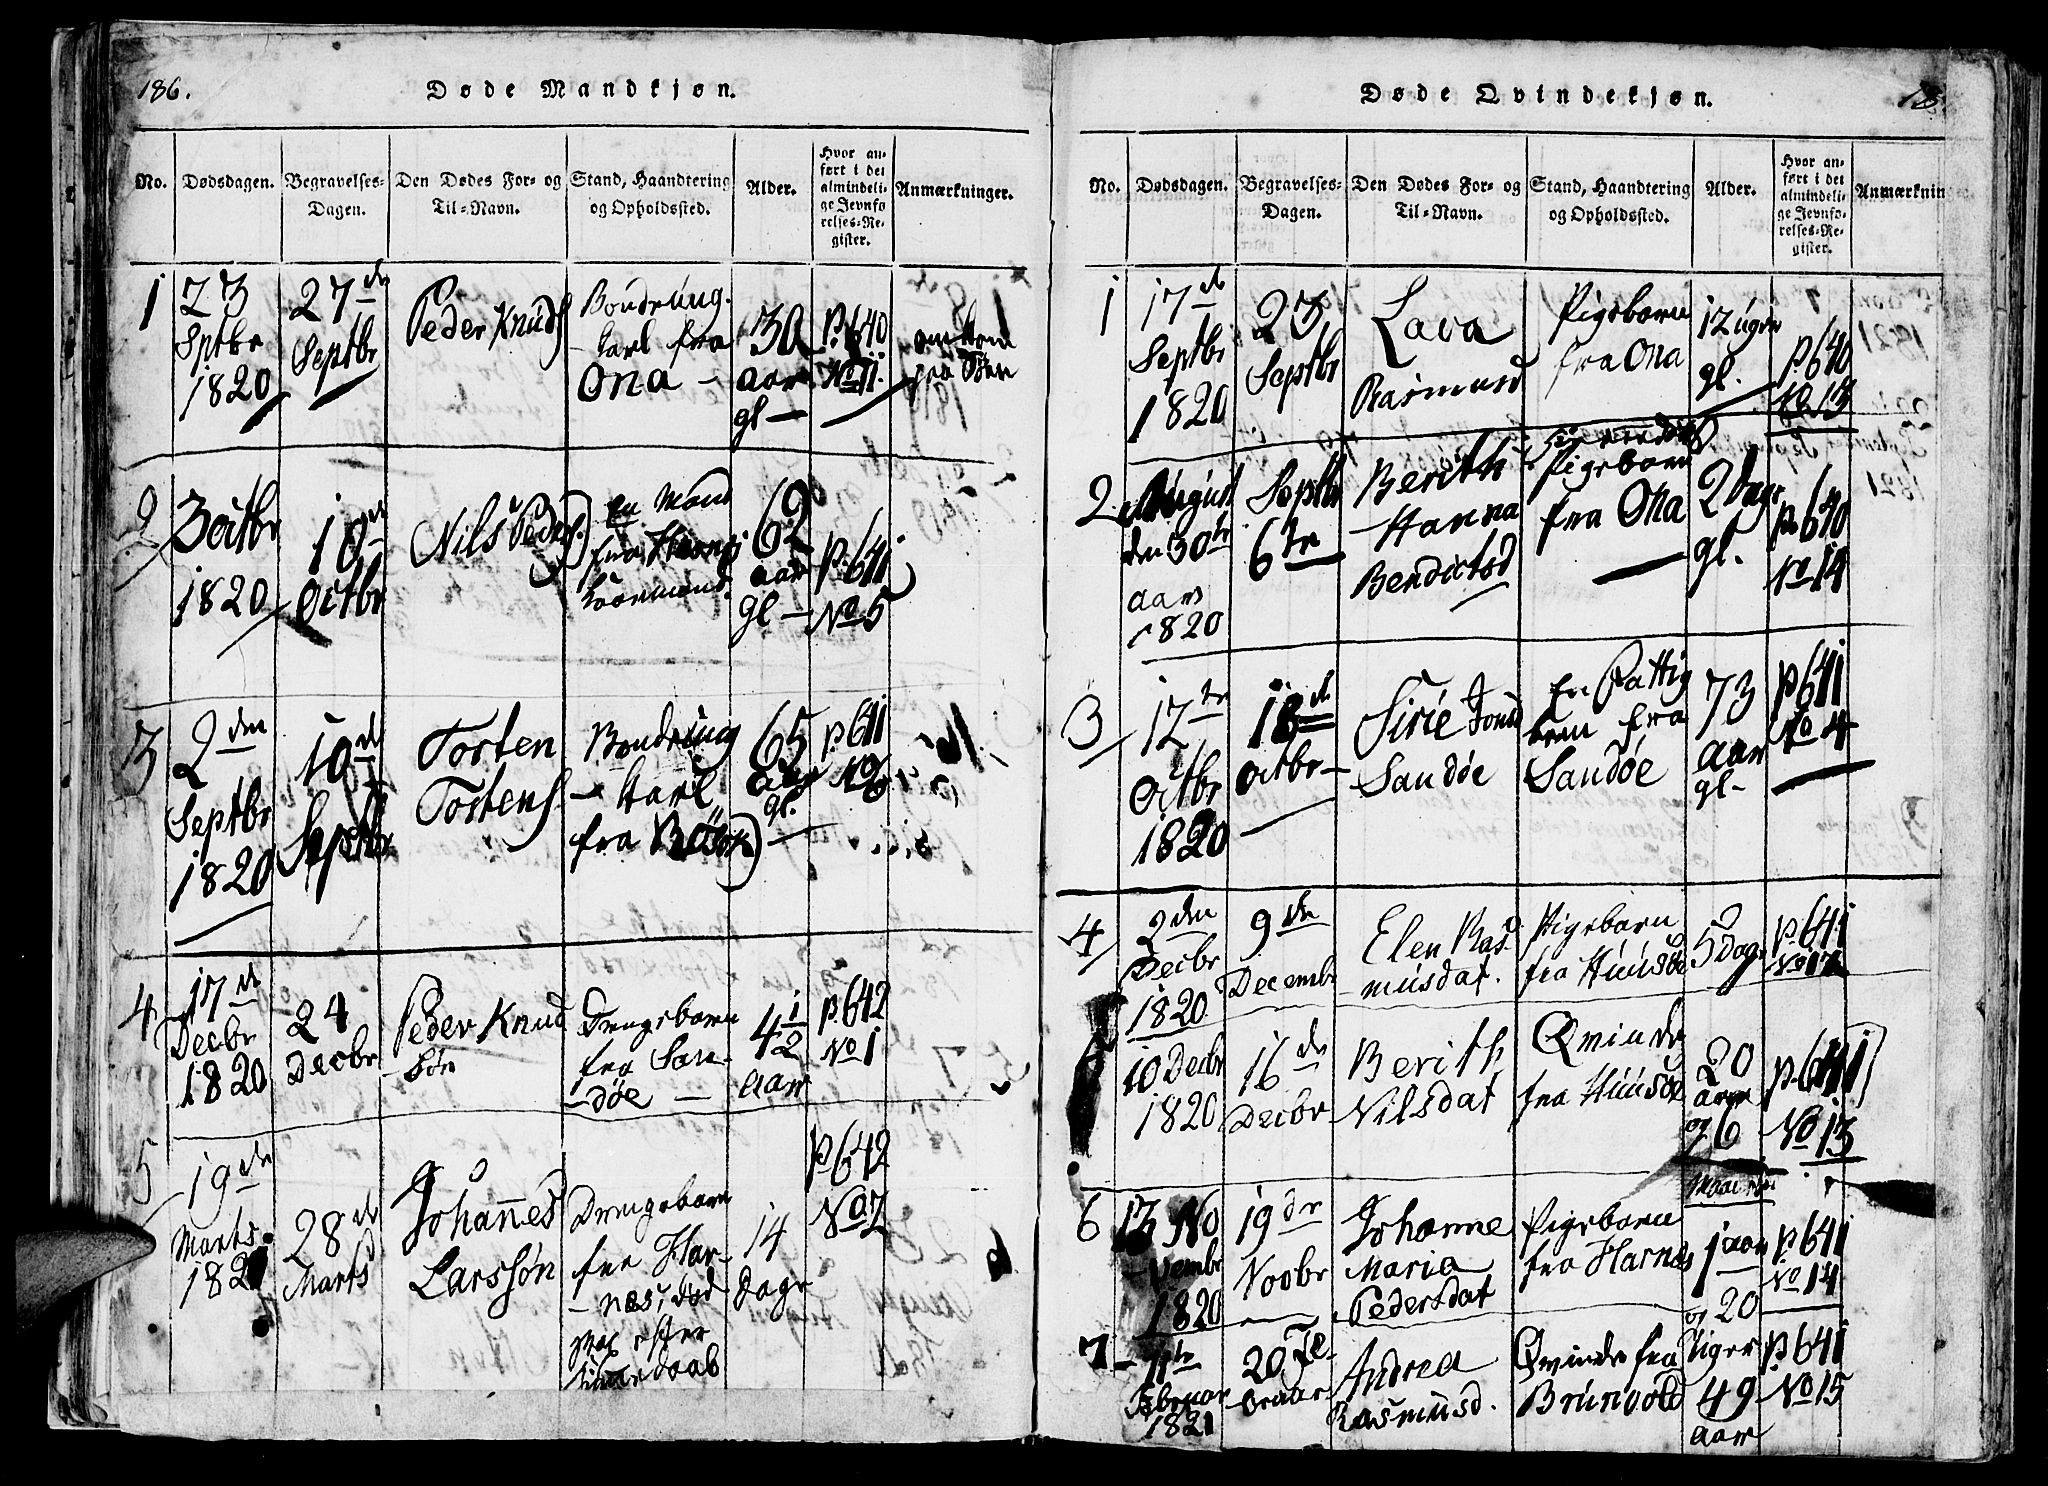 186.
Døde Mandkjøn.
No.
Dødsdagen.
Begravelses-
Dagen.
Den Dødes For- og
Til-Navn.
Stand, Haandtering
og Opholdssted.
Alder.
Hvor an-
ført i det
almindeli-
ge Jevnfø
relses-Re-
gister.
Anmærkninger.
1
23
Sptbr
1820
27de
Septbr
Peder Knuds
Bondeung-
karl fra
Ona -
30
aar
gl -
P. 640
No 11.
omkom
paa Søen
2
3 Octbr
1820
10de
Octbr
Nils Peders.
En Mand
fra
62
aar
gl -
P. 641
No 5
3
2den
Septbr
1820
10de
Septbr
Torsten
Torstens
Bondeung
- karl
fra
65
aar
gl.
P. 641
No 6
4
17de
Decbr
1820
24
Decbr
Peder Knud
- søn
Drengebarn
fra San-
- døe -
4 1/2
aar
P. 642
No 1
5
19de
Marts
1821
28de
Marts
Johannes
Larssøn
Drengebarn
fra Har-
- næs, død
efter
daab
14
Dage
P. 642
No 2
Døde Qvindekjøn.
18
No.
Dødsdagen.
Begravelses-
Dagen.
Den Dødes For- og
Til-Navn.
Stand, Haandtering
og Opholdssted.
Alder.
Hvor an-
ført i det
almindeli-
ge Jevnfø-
relses-Re-
gister.
Anmærkning
1
17de
Septbr
1820
23
Septbr
Lava
Rasmusd
Pigebarn
fra Ona
12 uger
gl.
P. 640
No 13
2
August
den 30te
aar
1820
Septbr
6te
Berith
- Hanna
Bendictsd
Pigebarn
fra Ona
2 Dage
gl.
P. 640
No 14
3
12te
Octbr
1820
18de
Octbr -
Sirie Jonsd
Sandøe
En Fattig
fra
Sandøe
73
aar
gl -
P. 641
No 4
4
2den
Decbr
1820
9de
Decembr
Elen Ras
- musdat.
Pigebarn
fra Huusøe
5 Dage
P. 641
No 12
10 Decbr
1820
16de
Decbr
Berith
Nilsdat
Qvinde
fra Huusøe
20
aar
og 6
Maaneder
P. 641
No 13
6
13 No
- vembr
1820
19de
Novbr
Johanne
Maria
Pedersdat
Pigebarn
fra Harnæs
1 aar
og 20
Uger
P. 641
No 14
7 -
11te
Februar
1821
20 Fe-
- bruar
Andrea
Rasmusd.
Qvinde fra
Brunvold
49
aar
P. 641
No 15